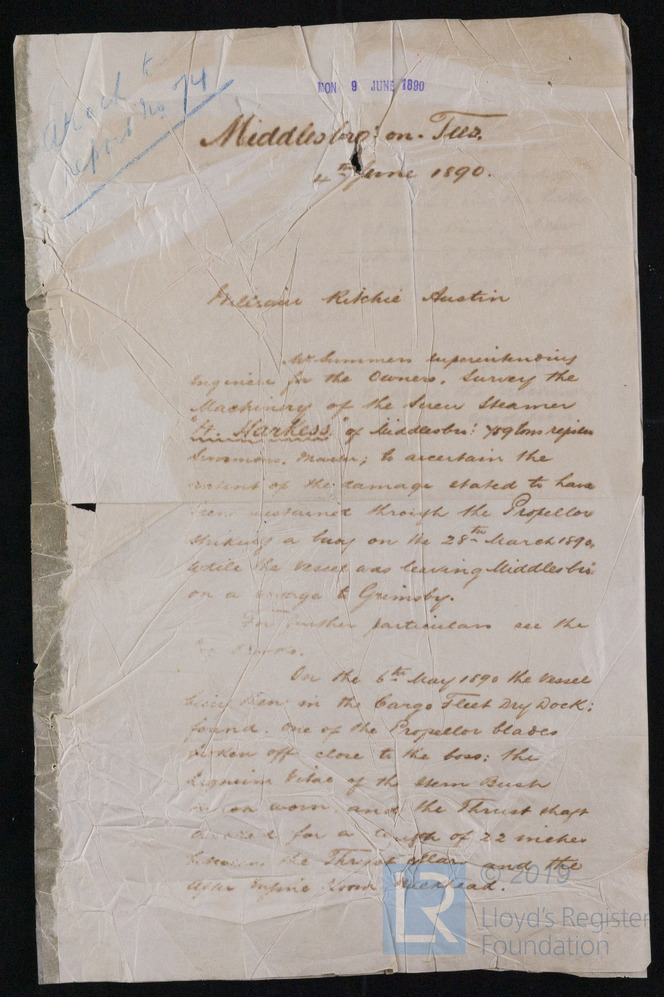 attach to
report No 74
LON 9 JUNE 1890
Middlesbro' on-Tees.
4th June 1890.
William Ritchie Austin
Mr Summers Superintending
Engineer for the Owners, Survey the
Machinery of the Screw Steamer
"H. Harkess" of Middlesbro': tons register
Simmons, Master; to ascertain the
extent of the damage stated to have
been sustained through the Propellor
striking a buoy on the 28th March 1890,
while the vessel was leaving Middlesbro'
on a voyage to Grimsby.
For further particulars see the
Books.
On the 6th May 1890 the vessel
being then in the Cargo Fleet Dry Dock:
found: one of the Propellor blades
broken off close to the boss: the
Lignum Vitae of the Stern Bush
worn, and the Thrust shaft
for a length of 22 inches
between the Thrust collar and the
after Engine Room Bulkhead.
© 2019
LR
Lloyd's Register
Foundation